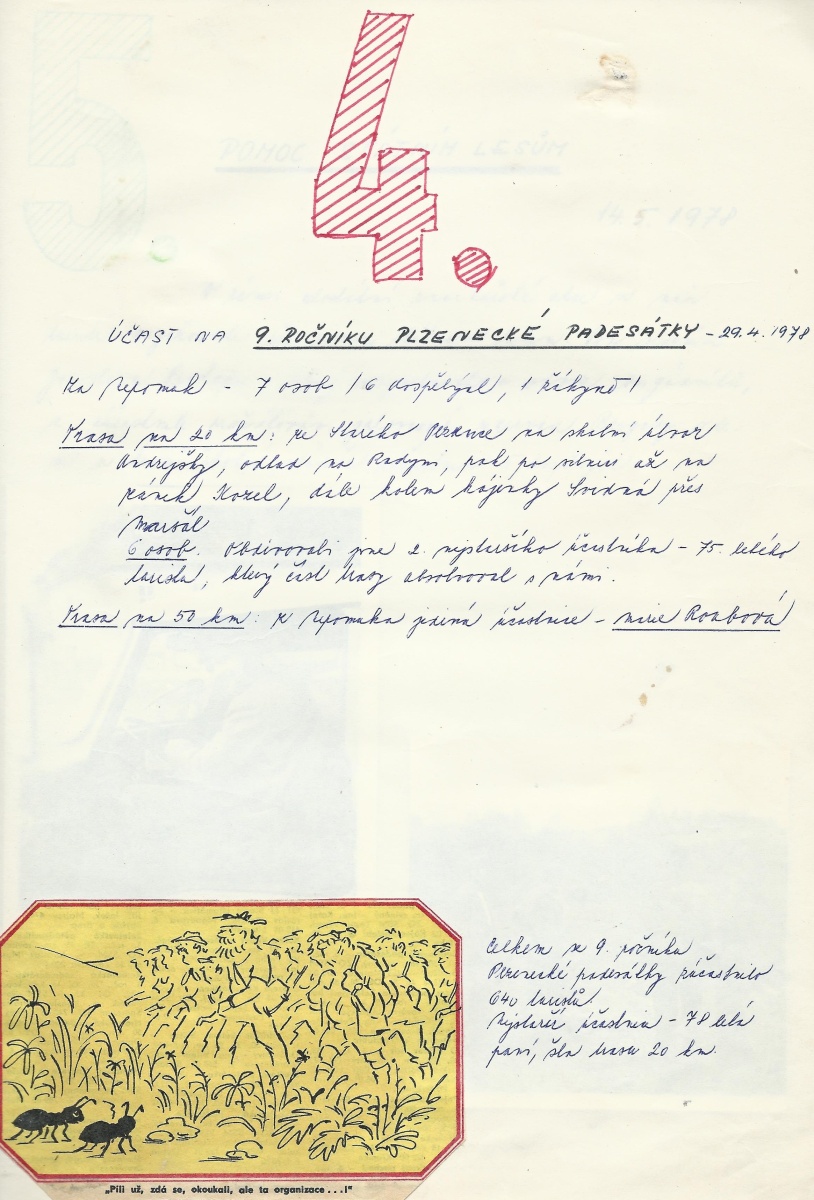 4.
ÚČAST NA 9. ROČNÍKU PLZENECKÉ PADESÁTKY - 29.4.1978
Za Nepomuk - 7 osob / 6 dospělých, 1 žákyně /
Trasa na 20 km: ze Starého Plzence na skalní útvar
Andrejšky, odtud na Radyni, pak po silnici až na
zámek Kozel, dále kolem hájenky Svidná přes
Maršál
6 osob. Obdivovali jsme 2. nejstaršího účastníka - 75. letého
turistu, který část trasy absolvoval s námi.
Trasa na 50 km: z Nepomuka jediná účastnice - Marie Roubová
Celkem se 9. ročníku
Plzenecké padesátky zúčastnilo
640 turistů!
Nejstarší účastnice - 78 letá
paní, šla trasu 20 km.
„Píli už, zdá se, okoukali, ale ta organizace...!"
POMOC LESŮM
14.5.1978
5.